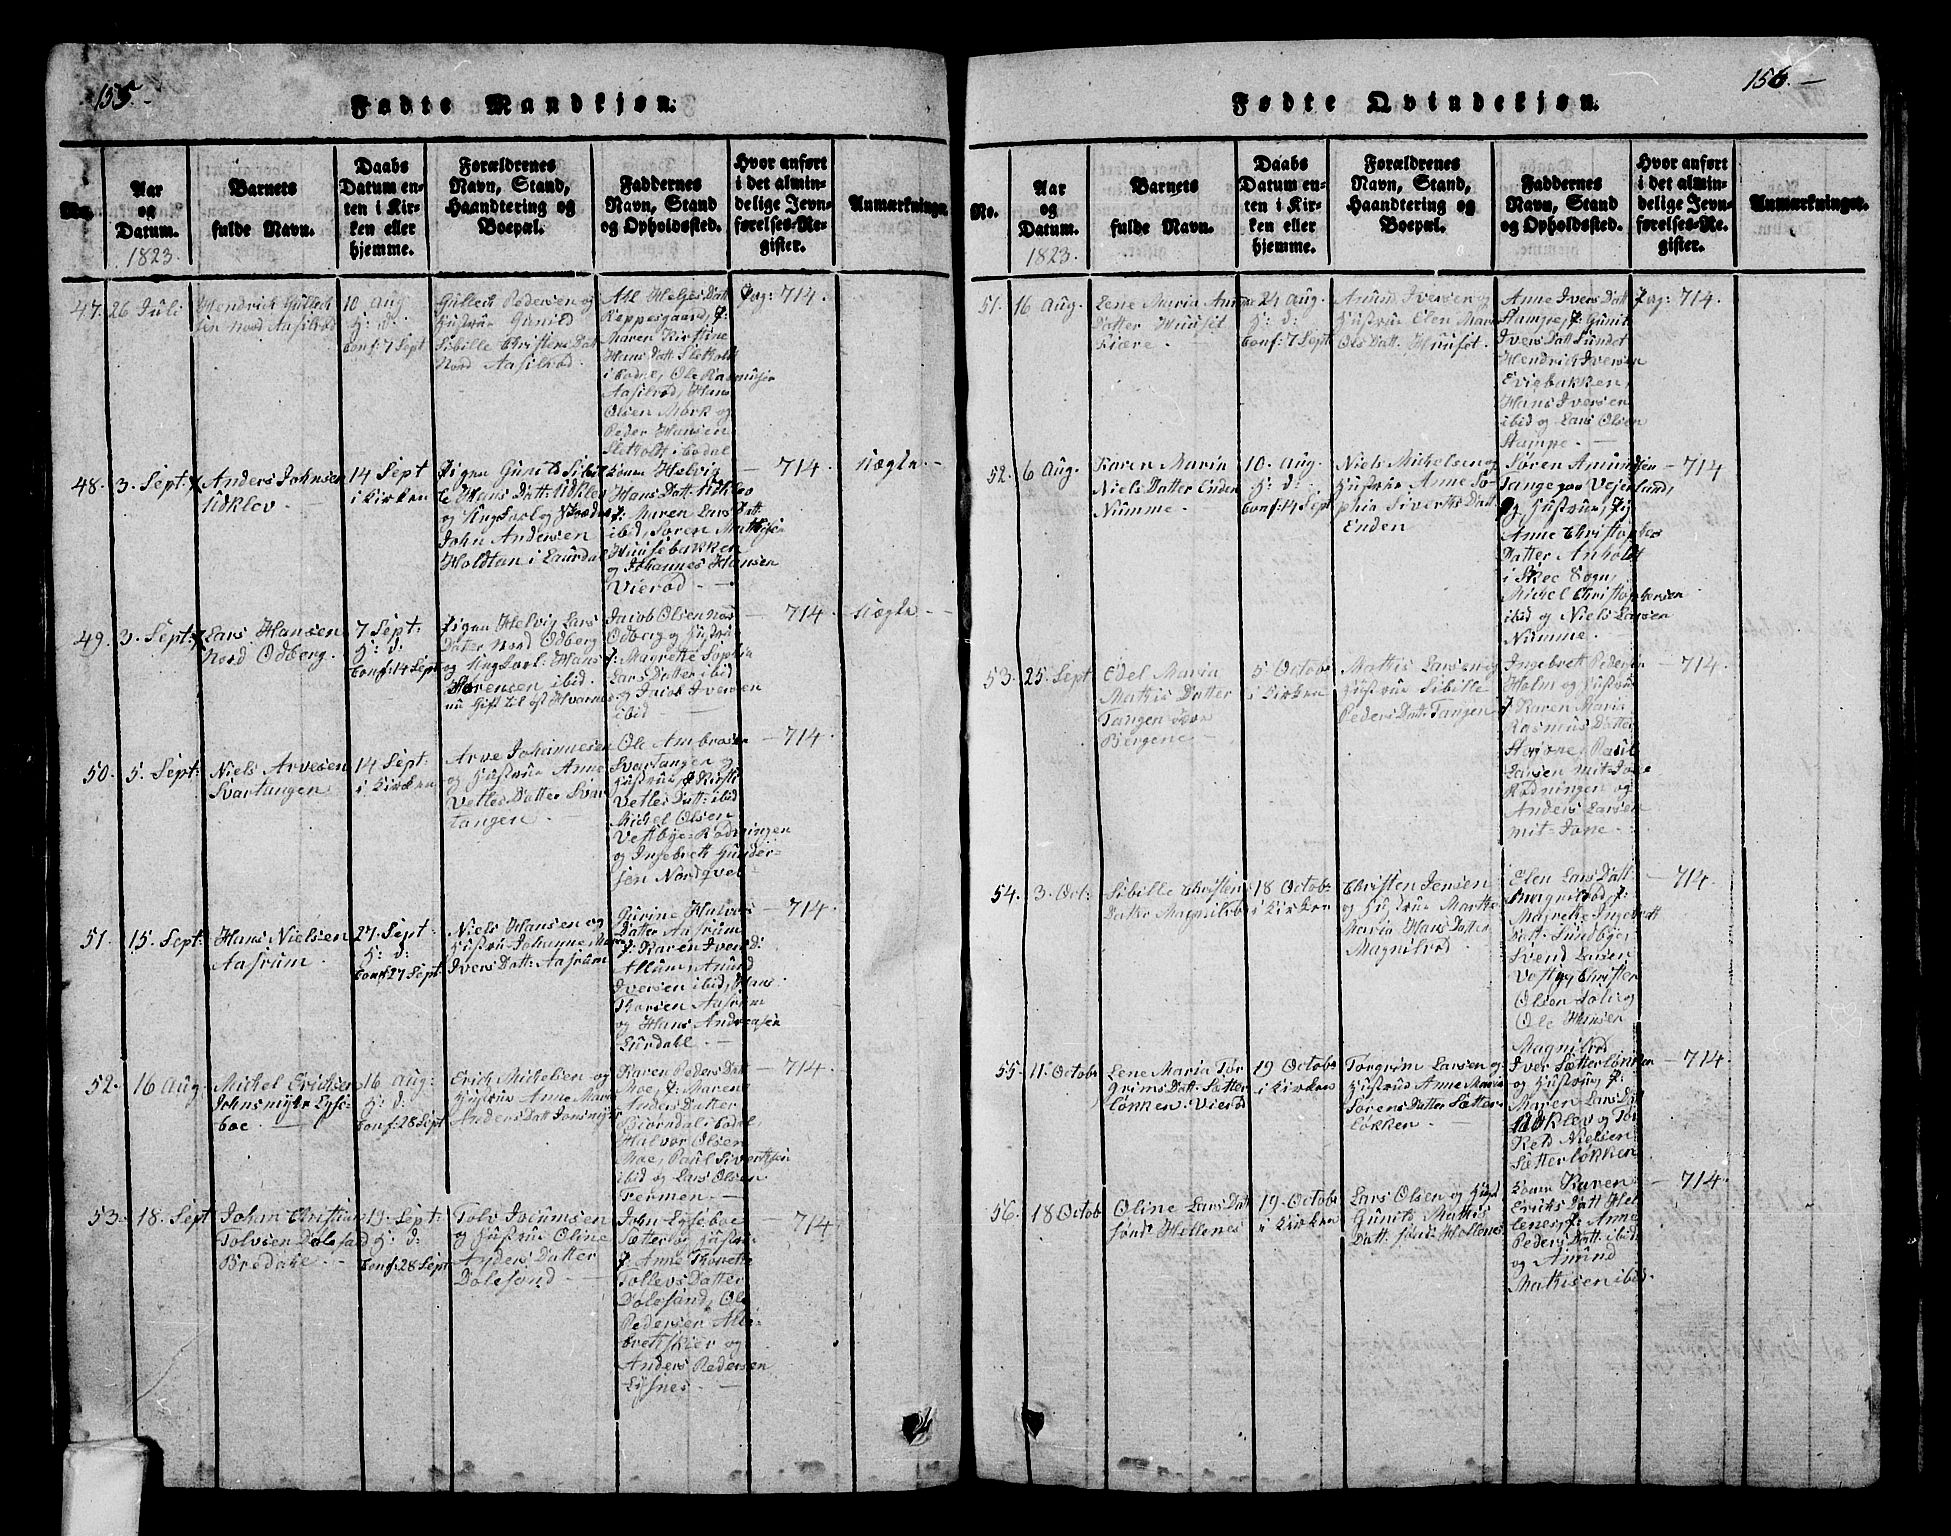 155.-
Fødte Mandkjøn.
No.
Aar
og
Datum.
1823.
Barnets
fulde Navn.
Daabs
Datum en-
ten i Kir-
ken eller
hjemme.
Forældrenes
Navn, Stand,
Haandtering og
Boepæl.
Faddernes
Navn, Stand
og Opholdssted.
Hvor anført
i det almin-
delige Jevn-
førelses-Re-
gister.
Anmærkninger.
47. 26 Juli
Hendrich Gullech
sen Nord Aasilrød
10 Aug
H: d:
Conf: 7 Sept
Gullech Pedersen og
Hustrue Gunild
Sibille Christens Datt
Nord Aasilrød
Hans Datt: Sletholt
i Bodne, Ole Rasmusen
Aasilrød, Hans
Olsen Mørk og
Peder Hansen
Sletholt ibodal
Pag: 714.
48. 3. Sept:
Anders Johnsen
Udklev.
14 Sept
i Kirken
Pigen Gunild Sibil
le Hans Datt: Udklev
John Andersen
Holdtan i Laurdal
Hans Datt: Udklev
Maren Lars Datt:
ibid, Søren Mathisen
Huusebakken
og Johannes Hansen
Vierød. -
- 714
Nægte -
49. 3. Sept:
Lars Hansen
Nord Odberg.
7 Sept:
H: d:
Conf: 14 Sept
Pigen Helvig Lars
Dater Nord Odberg
og Ung Karl: Hans
Sørensen ibid.
nu Gift til Øst Hvarnes
Jacob Olsen Nord
Odberg og Hustru
Magrette Sophia
Lars Datter ibid
og Jacob Iversen
ibid -
- 714
Nægte -
50. 5. Sept:
Niels Arvesen
Svartangen
14 Sept:
i Kirken
Arve Johannesen
og Hustrue Anne
Vetles Datter Svar
tangen. -
Ole Ambrosen
Svartangen og
Hustrue Kirsti
Vetles Datt: ibid
Michel Olsen
Vestbye: Rødningen
og Ingebret Gunder
sen Nordqvel
- 714.
51. 15. Sept:
Hans Nielsen
Aasrum.
27. Sept
H: d:
Conf: 27 Sept
Niels Hansen og
Hustru Johanne Marie
Ivers Datt: Aasrum
Gurine Halvors
Datter Aasrum
Karen Ivers D:
Allum Amund
Iversen ibid, Hans
Thorsen Aasrum
og Hans Andreasen
Lurdahl. -
- 714.
52. 16 Aug
Michel Erichsen
Johnsmyhr Lyse-
boe. -
16 Aug:
H: d:
Conf: 28 Sept
Erich Michelsen og
Hustrue Anne Marie
Anders Datt Jonsmyhr
Karen Peders Datt
Moe, Maren
Anders Datter
Biørndal ibodal,
Halvor Olsen
Moe, Paul Sivertsen
ibid og Lars Olsen
Fermen. -
- 714
53. 18. Sept
Johan Christian
Tolvsen Dølesand
Brødahl. -
19. Sept:
H: d:
Conf: 28 Sept
og Hustrue Oline
Anders Datter
Dolesand. -
John Lyseboe
Sætterløe Hustru
Anne Thorette
Tollevs Datter
Dolesand, Ole
Pedersen Alle-
bretskier og
Anders Pedersen
Lysnes. -
714
156.-
Fødte Qvindekjøn.
No.
Aar
og
Datum.
1823.
Barnets
fulde Navn.
Daabs
Datum en-
ten i Kir-
ken eller
hjemme.
Forældrenes
Navn, Stand,
Haandtering og
Boepæl.
Faddernes
Navn, Stand
og Opholdssted.
Hvor anført
i det almin-
delige Jevn-
førelses-Re-
gister.
Anmærkninger.
51. 16 Aug.
Lene Maria Amun
Datter Huuset
Kiære. -
24 Aug.
H: d:
Conf: 7 Sept
Amund Iversen og
Hustrue Elen Marie
Ols Datt: Huuset.
Anne Ivers Datt
Stampe, Gunil
Ivers Datt Sundet
Hendrich Iversen
Evigbakken,
Hans Iversen
ibid og Lars Olsen
Stampe. -
Pag: 714.
52. 6 Aug.
Karen Maria
Niels Datter Enden
Numme. -
10 Aug.
H: d:
Conf: 14 Sept
Niels Michelsen og
Hustrue Anne So-
phia Siverts Datt
Enden
Søren Amundsen
Tange paa Vejerland,
og Hustrue, Pig
Anne Christophers
Datter Anholdt
i Skee Sogn,
Michel Christophersen
ibid og Niels Larsen
Numme. -
- 714
53. 25. Sept
Edel Maria
Mathis Datter
Tangen
Bergene -
5 Octobr
i Kirken
Mathis Larsen og
Hustrue Sibille
Peders Datt: Tangen
Ingebrett Pedersen
Holm og Hustrue
Karen Maria
Rasmus Datter
Larsen mit-Jone
Rødningen og
Anders Larsen
mit-Jone. -
- 714.
54. 3. Oct:
Sibille Christen
Datter Magnilrød
18 Octob:
i Kirken
Christen Jensen
og Hustrue Marthe
Maria Hans Datter
Magnilrød
Elen Lars Datt
Magnilrød,
Magrethe Ingebrett
Datt: Sundbye,
Svend Larsen
Vestby, Christen
Olsen Solie og
Ole Hansen
Magnilrød
- 714.
55. 11. Octob:
Lene Maria Tor
grims Datt: Sætter
løkken: Vierød
19 Octob:
i Kirken
Torgrim Larsen og
Hustrue Anne Maria
Sørens Datter Sætter-
løkken. -
Iver Sætterløkken
og Hustrue,
Maren Lars Datt
Udklev og Tor
Keld Nielsen
Sætterløkken
- 714
56. 18 Octob
Oline Lars Datt
sønd: Hellenes
19. Octob:
i Kirken
Lars Olsen og Hust
Gunild Mathis
Datt: sønd: Hellenes
Karen
Erichs Datt Hel
lenes, Anne
Peders Datt: ibid
og Amund
Mathisen ibid.
- 714.